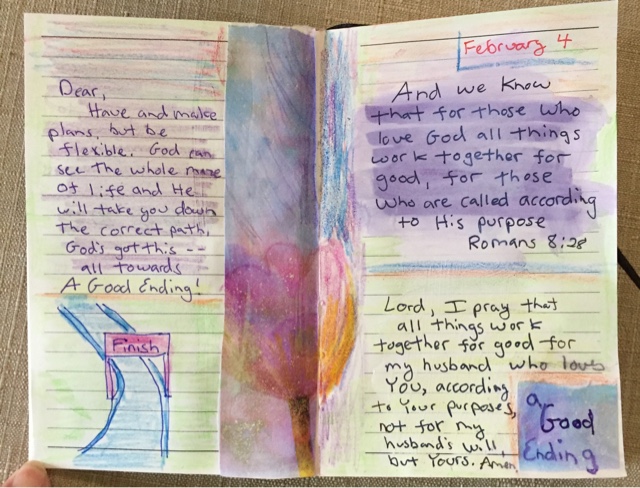 Dear,
Have and make
plans, but be
flexible. God can
see the whole maze
of life and He
will take you down
the correct path.
God's got this --
all towards
A Good Ending!
Finish
February 4
And we know
that for those who
love God all things
work together for
good, for those
who are called according
to His purpose
Romans 8:28
Lord, I pray that
all things work
together for good for
my husband who loves
You, according
to Your purposes,
not for my
husband's will,
but Yours. Amen.
a
Good
Ending